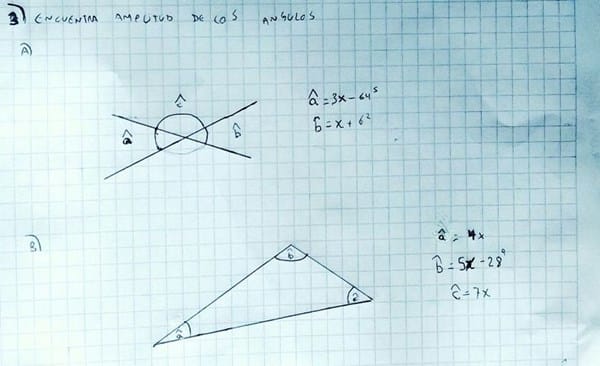 3) ENCUENTRA AMPLITUD DE LOS ANGULOS
A)
ĉ
â
b̂
â = 3x - 64°
b̂ = x + 6°
B)
b̂
â
ĉ
â = 4x
b̂ = 5x - 28°
ĉ = 7x